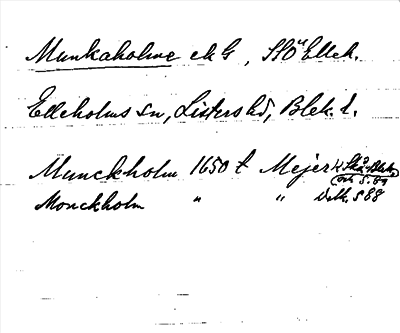 Munkaholme ck G, StÖ Ellek.
Elleholms sn, Listers hd, Blek. l.
Munckholm 1650 t Mejer K Skå-Blek
och S. 69
Monckholm " " Ibdk. S 68